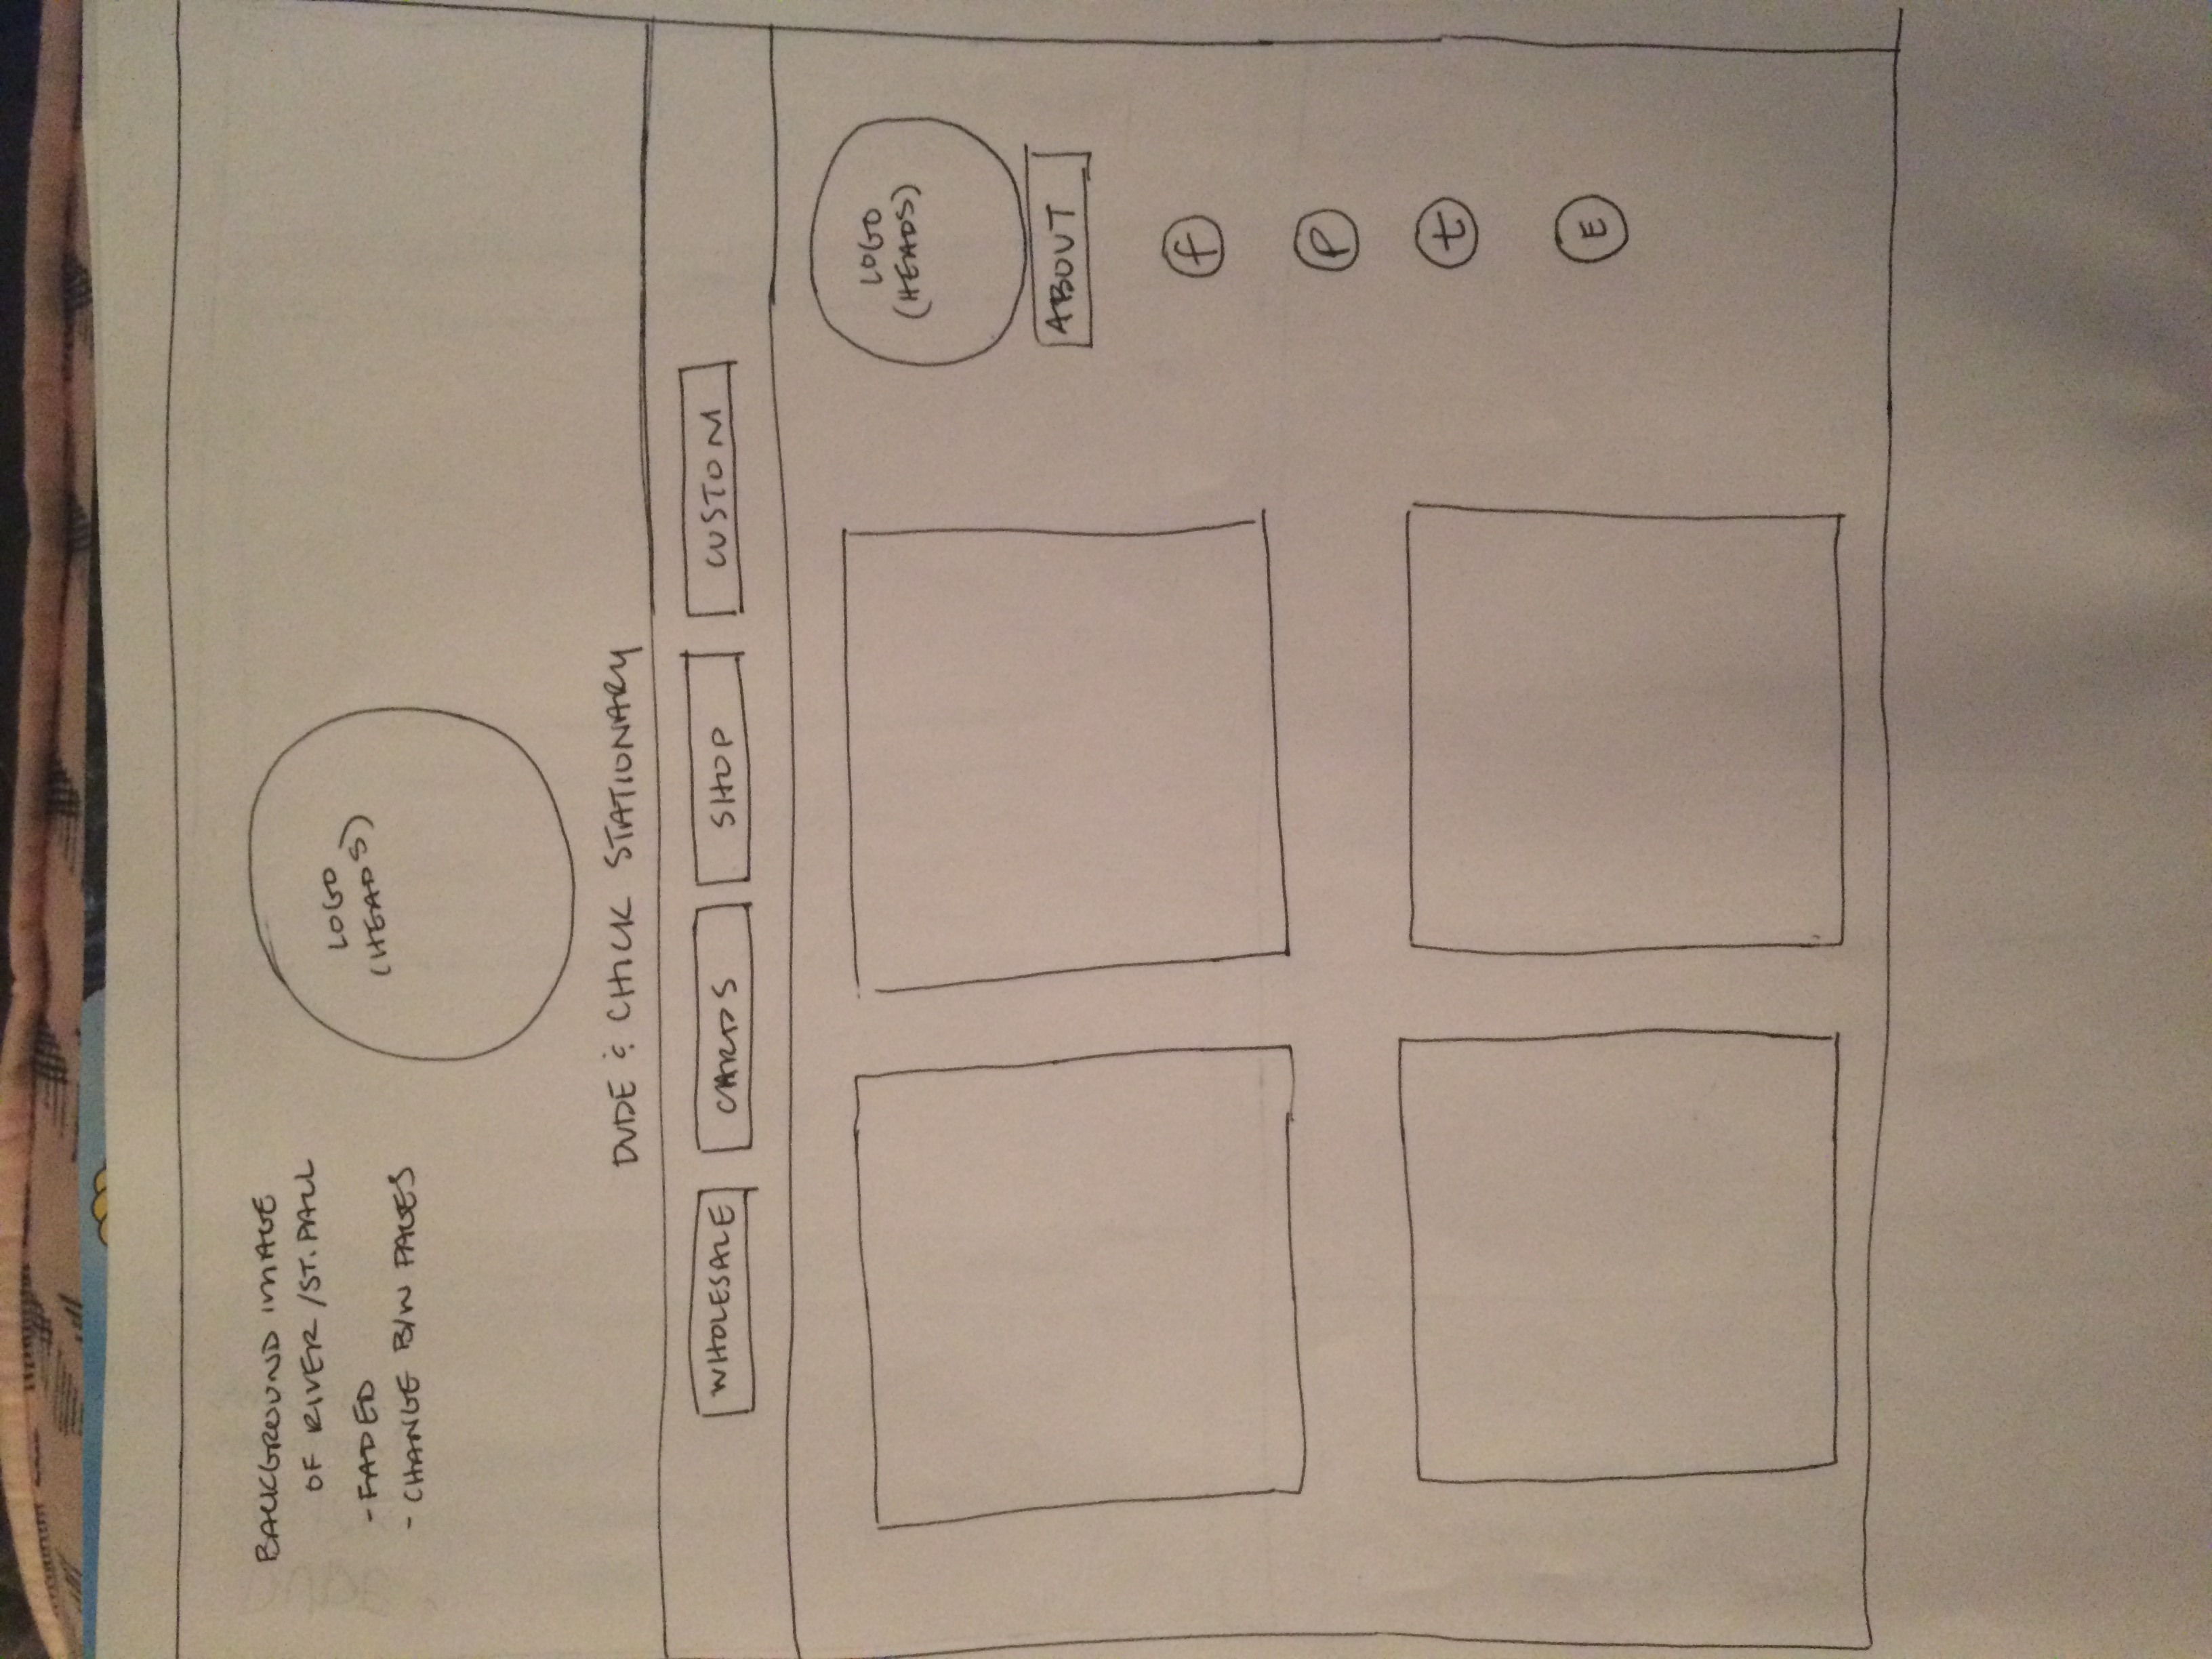 BACKGROUND IMAGE
OF RIVER / ST. PAUL
- FADED
- CHANGE B/W PAGES
LOGO
(HEADS)
DUDE & CHICK STATIONARY
WHOLESALE CARDS SHOP CUSTOM
LOGO
(HEADS)
ABOUT
f
P
t
E